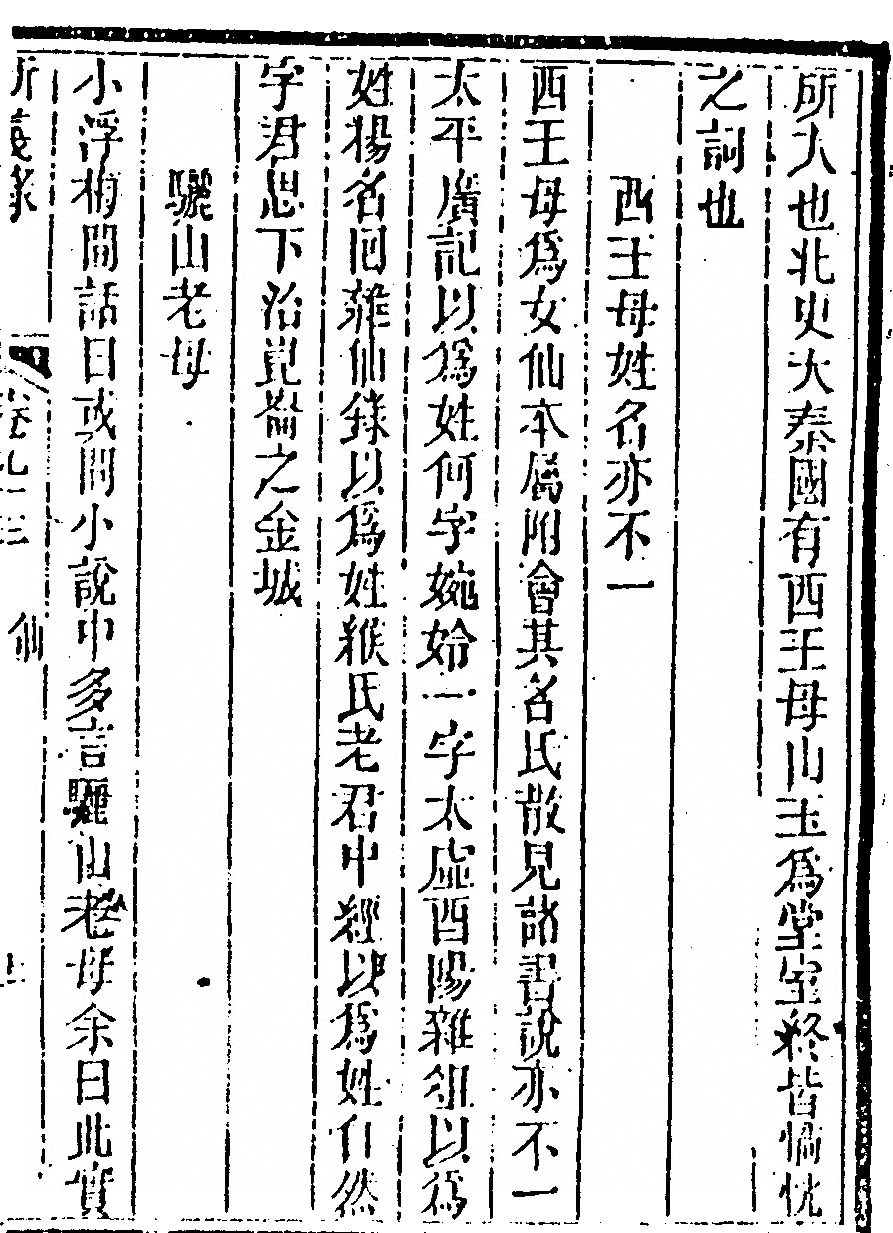 所入也北史大秦國有西王母山玉爲堂室終皆惝恍
之詞也
西王母姓名亦不一
西王母爲女仙本屬附會其名氏散見諸書說亦不一
太平廣記以爲姓何字婉妗一字太虛酉陽雜俎以爲
姓楊名回雜仙錄以爲姓緱氏老君中經以爲姓自然
字君思下治崑崙之金城
驪山老母
小浮梅閒話曰或問小說中多言驪山老母余曰此實
卷九十三 仙